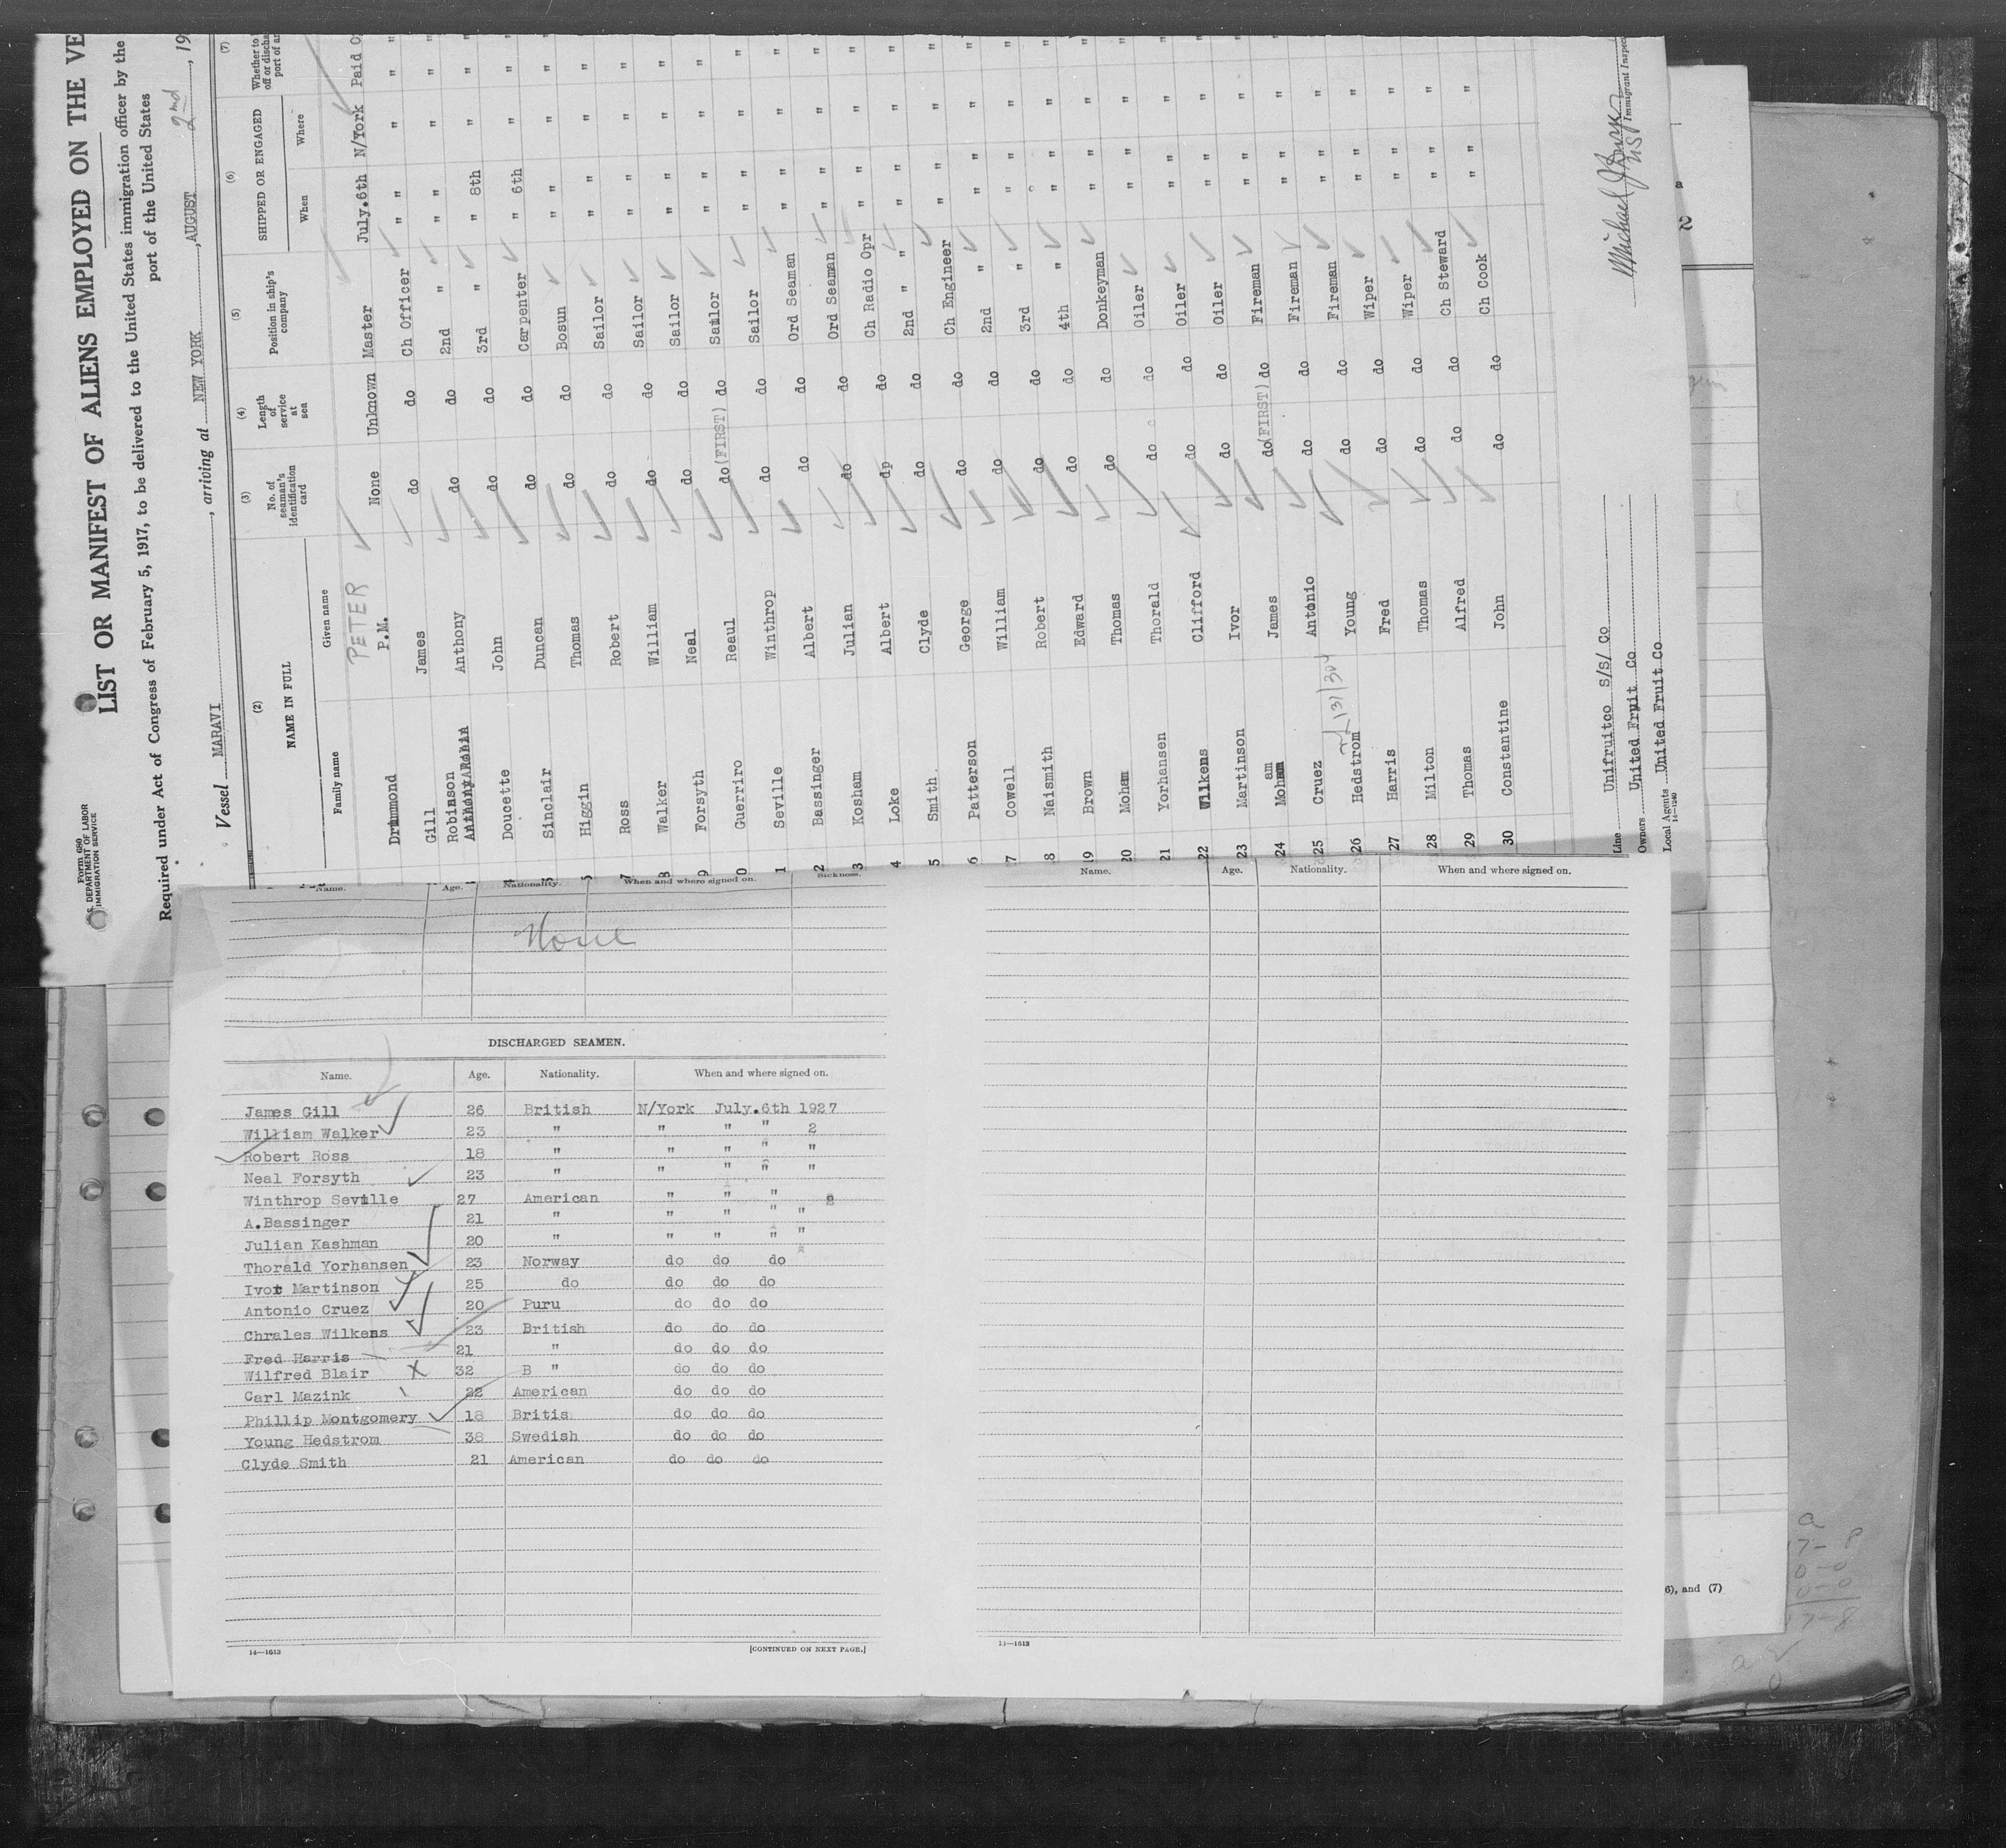 Form 680
U.S. DEPARTMENT OF LABOR
IMMIGRATION SERVICE
LIST OR MANIFEST OF ALIENS EMPLOYED ON THE VE
Required under Act of Congress of February 5, 1917, to be delivered to the United States immigration officer by the
port of the United States
Vessel MARAVI, arriving at NEW YORK, AUGUST 2nd, 19
(2) (3) (4) (5) (6) (7)
NAME IN FULL No. of seaman's identification card Length of service at sea Position in ship's company SHIPPED OR ENGAGED Whether to
off or discha
port of ar
Family name Given name When Where
PETER
Drummond P.M. None Unknown Master July.6th N/York Paid O
Gill James do do Ch Officer " " " "
Robinson Anthony do do 2nd " " " " "
Doucette John do do 3rd " " 8th " "
Sinclair Duncan do do Carpenter " 6th " "
Higgin Thomas do do Bosun " " " "
Ross Robert do do Sailor " " " "
Walker William do do Sailor " " " "
Forsyth Neal do do Sailor " " " "
Guerriro Reaul do (FIRST) do Sailor " " " "
Seville Winthrop do do Sailor " " " "
Bassinger Albert do do Ord Seaman " " " "
Kosham Julian do do Ord Seaman " " " "
Loke Albert do do Ch Radio Opr " " " "
Smith Clyde do do 2nd " " " " " "
6 Patterson George do do Ch Engineer " " " "
7 Cowell William do do 2nd " " " " "
8 Naismith Robert do do 3rd " " " "
19 Brown Edward do do 4th " " " " "
20 Moham Thomas do do Donkeyman " " " "
21 Yorhansen Thorald do do Oiler " " " "
22 Wilkens Clifford do do Oiler " " " "
23 Martinson Ivor do do Oiler " " " "
24 Moham am James do (FIRST) do Fireman " " " "
25 Cruez Antonio do do Fireman " " " "
26 Hedstrom Young do do Fireman " " " "
27 Harris Fred do do Wiper " " " "
28 Milton Thomas do do Wiper " " " "
29 Thomas Alfred do do Ch Steward " " " "
30 Constantine John do do Ch Cook " " " "
Line Unifruitco S/S/ Co
Owners United Fruit Co
Local Agents United Fruit Co
14-1240
Immigrant Inspec
Name. Age. Nationality. When and where signed on. Sickness.
None
Name. Age. Nationality. When and where signed on.
DISCHARGED SEAMEN.
Name. Age. Nationality. When and where signed on.
James Gill 26 British N/York July.6th 1927
William Walker 23 " " " " 2
Robert Ross 18 " " " " "
Neal Forsyth 23 " " " " "
Winthrop Seville 27 American " " "
A.Bassinger 21 " " " " "
Julian Kashman 20 " " " " "
Thorald Yorhansen 23 Norway do do do
Ivor Martinson 25 do do do do
Antonio Cruez 20 Puru do do do
Chrales Wilkens 23 British do do do
Fred Harris 21 " do do do
Wilfred Blair 32 B " do do do
Carl Mazink 22 American do do do
Phillip Montgomery 18 Britis do do do
Young Hedstrom 38 Swedish do do do
Clyde Smith 21 American do do do
14—1613 [CONTINUED ON NEXT PAGE.]
14—1613
6), and (7)
a
17-8
0-0
0-0
17-8